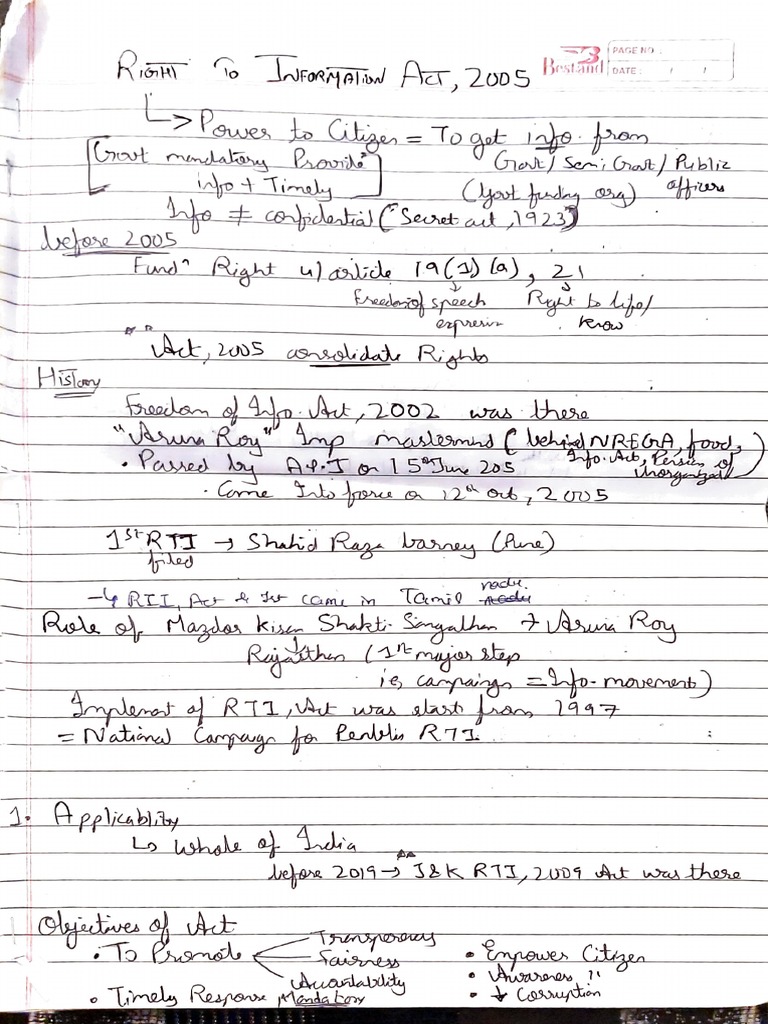 RIGHT TO INFORMATION ACT, 2005
Bestand
PAGE NO :
DATE : / /
↳ Power to Citizen = To get info. from
[Govt mandatory Provide info + Timely]
Govt / Semi Govt / Public officers
(Govt funding org)
Info ≠ confidential (Secret act, 1923)
before 2005
Fundⁿ Right u/article 19(1)(a), 21
Freedom of speech expression
Right to life/ know
Act, 2005 consolidate Rights
History
Freedom of Info. Act, 2002 was there
"Aruna Roy" Imp mastermind (behind NREGA, food,
Info. Act, Pension of unorganized)
• Passed by A.P.J on 15th June 205
• Came Into force on 12th oct, 2005
1st RTI filed → Shahid Raza barney (Pune)
↳ RTI, Act 1st came in Tamil nadu
Role of Mazdor Kisan Shakti Sangathan → Aruna Roy
Rajasthan (1st major step
ie, campaings = Info-movement)
Implement of RTI, Act was start from 1997
= National Campaign for RTI.
1. Applicablity
↳ Whole of India
before 2019 → J&K RTI, 2009 Act was there
Objectives of Act
• To Promote
Transperency
Fairness
Accountability
• Timely Response Mandatory
• Empower Citizen
• Awareness "
• ↓ Corruption